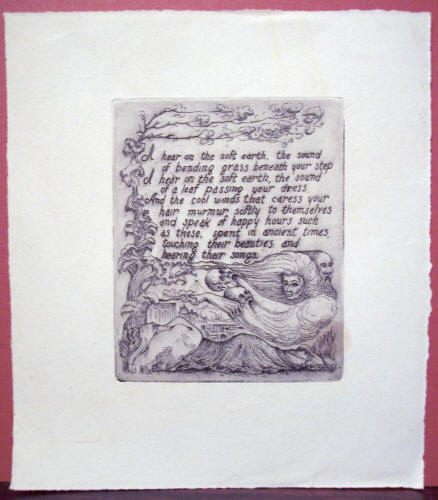 I hear on the soft earth, the sound
of bending grass beneath your step
I hear on the soft earth, the sound
of a leaf passing your dress.
And the cool winds that caress your
hair murmur softly to themselves
and speak of happy hours such
as these, spent in ancient times,
touching their beauties and
hearing their songs.